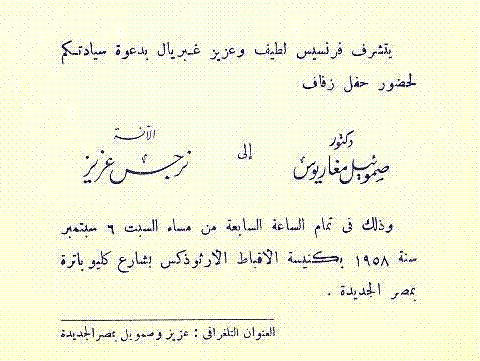 يتشرف فرنسيس لطيف وعزيز غبريال بدعوة سيادتكم
لحضور حفل زفاف
دكتور
صموئيل مغاريوس
إلى
الآنسة
نرجس عزيز
وذلك فى تمام الساعة السابعة من مساء السبت ٦ سبتمبر
سنة ١٩٥٨ بكنيسة الاقباط الارثوذكس بشارع كليوباترة
بمصر الجديدة .
العنوان التلغرافى : عزيز وصمويل بمصر الجديدة